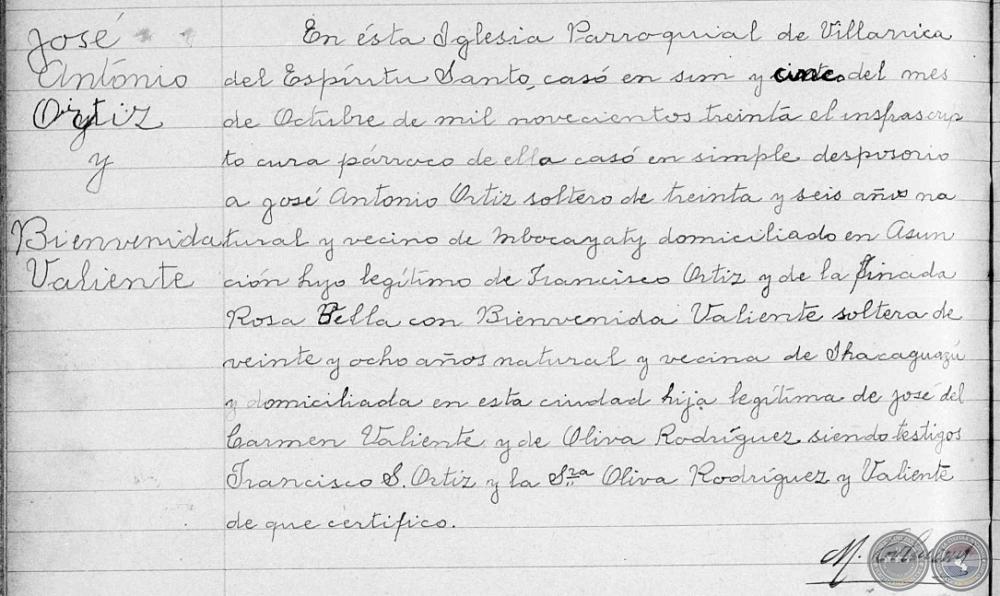 José
Antonio
Ortiz
y
Bienvenida
Valiente
En ésta Iglesia Parroquial de Villarrica
del Espíritu Santo, casó en sun y cinco del mes
de Octubre de mil novecientos treinta el insfrascrip
to cura párroco de ella casó en simple desposorio
a José Antonio Ortiz soltero de treinta y seis años na
tural y vecino de Mbocayaty domiciliado en Asun
ción hijo legítimo de Francisco Ortiz y de la finada
Rosa Vella con Bienvenida Valiente soltera de
veinte y ocho años natural y vecina de Ihacaguazú
y domiciliada en esta ciudad hija legítima de José del
Carmen Valiente y de Oliva Rodríguez siendo testigos
Francisco S. Ortiz y la Sra Oliva Rodríguez y Valiente
de que certifico.
M.